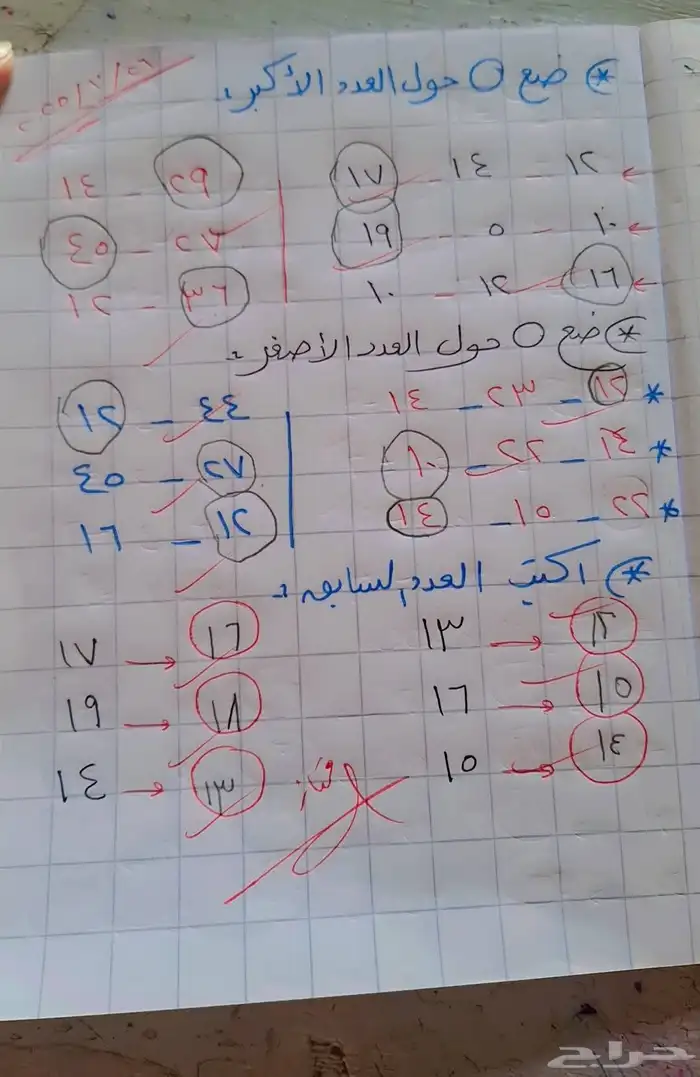 * ضع O حول العدد الأكبر :
١٢ - ١٤ - ١٧
٢٩ - ١٤
١٠ - ٥ - ١٩
٢٧ - ٤٥
١٦ - ١٢ - ١٠
٣٦ - ٢١
* ضع O حول العدد الأصغر :
* ١٢ - ٢٣ - ١٤
٤٤ - ١٢
* ١٤ - ٢٢ - ١٠
٢٧ - ٤٥
* ٢٢ - ١٥ - ١٤
١٢ - ١٦
* اكتب العدد السابق :
١٢ ← ١٣
١٦ ← ١٧
١٥ ← ١٦
١٨ ← ١٩
١٤ ← ١٥
١٣ ← ١٤
حراج